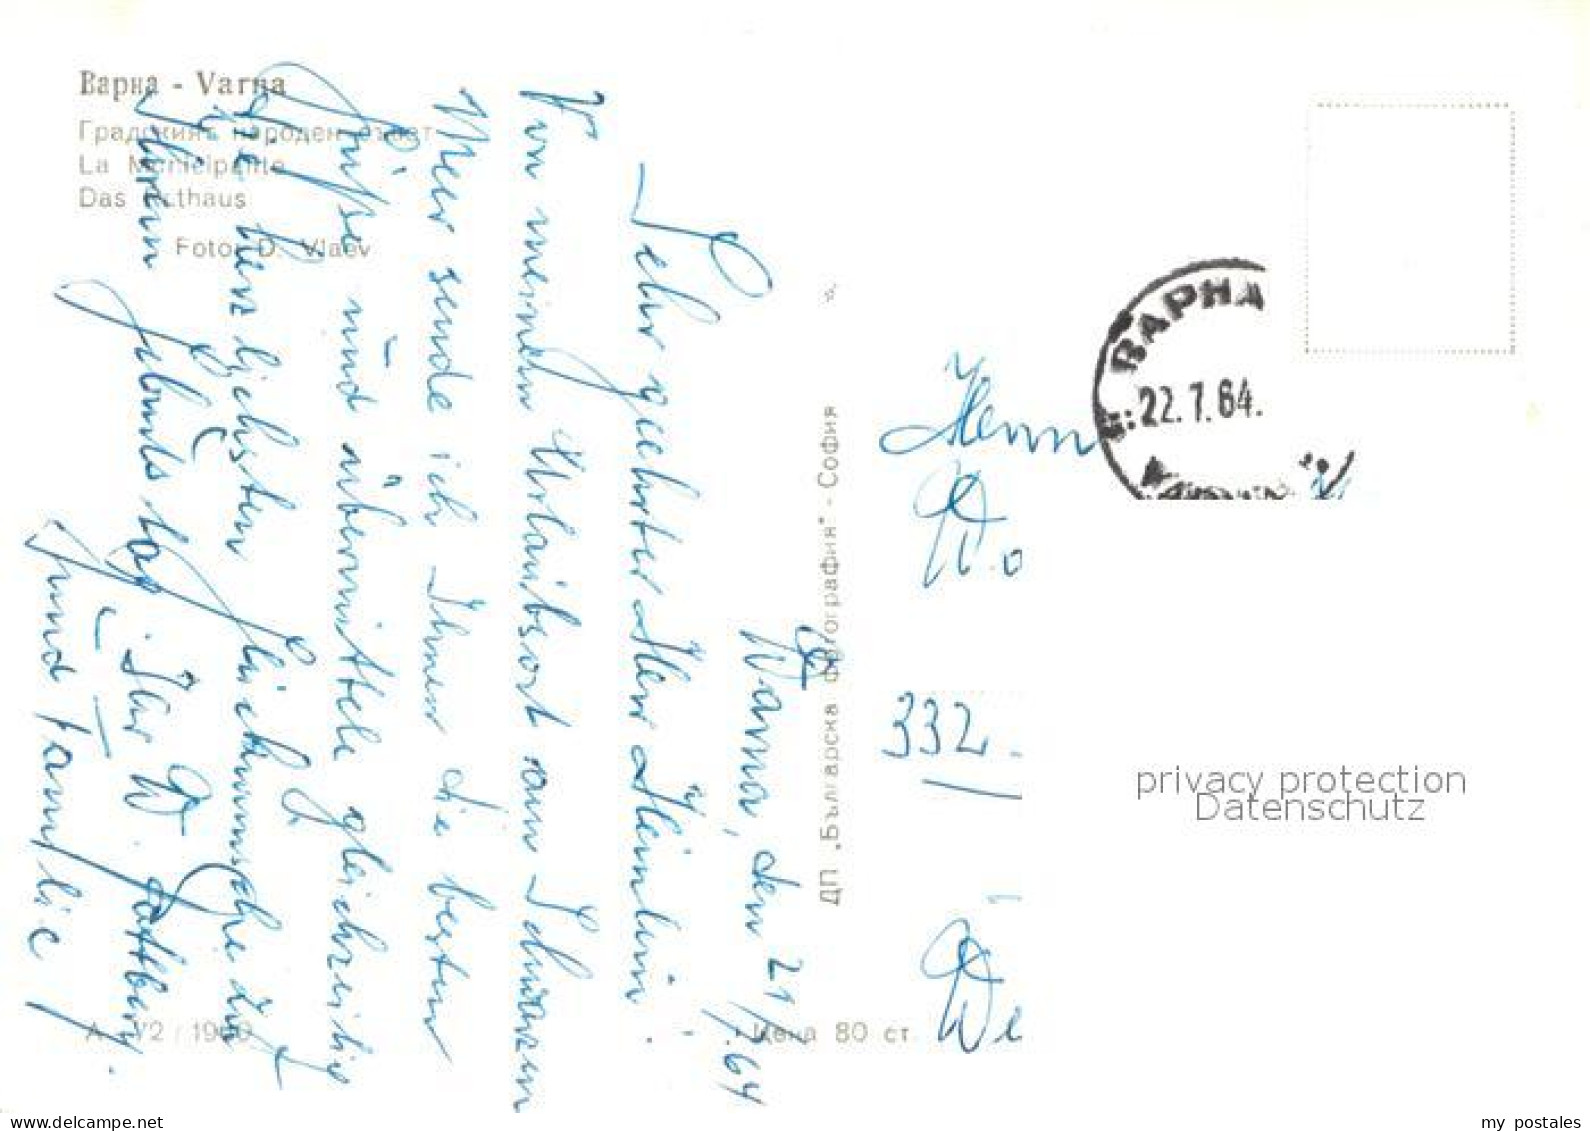 Варна - Varna
Градският народен съвет
La Municipalite
Das Rathaus
Foto: D. Vlaev
Warna, den 21.7.64
Sehr geehrter Herr Heimlein!
Von meinem Urlaubsort am Schwarzen
Meer sende ich Ihnen die besten
Grüße und übermittele gleichzeitig
die herzlichsten Glückwünsche zu
Ihrem Geburtstag. Ihr W.
und Familie
ДП „Българска фотография" - София
А 72 / 1960
Цена 80 ст.
ВАРНА
22.7.64.
Herrn
W.
332
We
privacy protection
Datenschutz
www.delcampe.net
my_postales